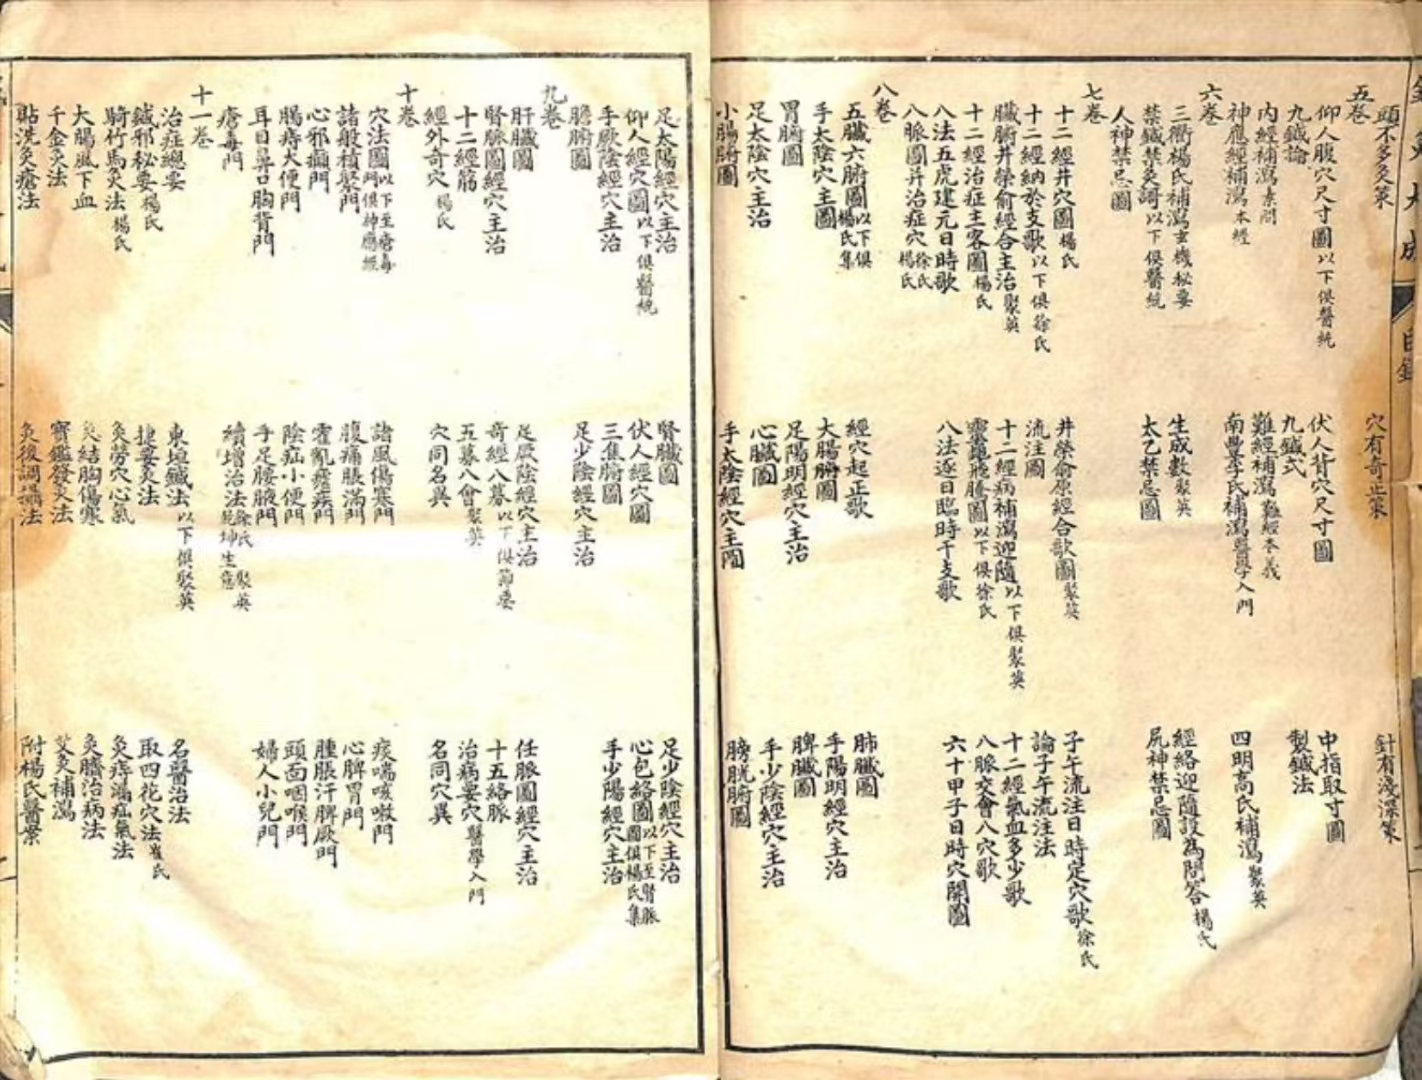 頭不多灸策　穴有奇正策　針有淺深策
五卷
仰人腹穴尺寸圖以下俱醫統　伏人背穴尺寸圖　中指取寸圖
九鍼論　九鍼式　製鍼法
內經補瀉素問　難經補瀉難經本義
神應經補瀉本經　南豐李氏補瀉醫學入門　四明高氏補瀉聚英
六卷
三衢楊氏補瀉玄機秘要　生成數聚英　經絡迎隨設為問答楊氏
禁鍼禁灸謌以下俱醫統　太乙禁忌圖　尻神禁忌圖
人神禁忌圖
七卷
十二經井穴圖楊氏　井滎俞原經合歌圖聚英　子午流注日時定穴歌徐氏
十二經納於支歌以下俱徐氏　流注圖　論子午流注法
臟腑井滎俞經合主治聚英　十二經病補瀉迎隨以下俱聚英　十二經氣血多少歌
十二經治症主客圖楊氏　靈龜飛騰圖以下俱徐氏　八脈交會八穴歌
八法五虎建元日時歌　八法逐日臨時干支歌　六十甲子日時穴開圖
八脈圖并治症穴徐氏楊氏
八卷
五臟六腑圖以下俱楊氏集　經穴起止歌　肺臟圖
手太陰穴主圖　大腸腑圖　手陽明經穴主治
胃腑圖　足陽明經穴主治　脾臟圖
足太陰穴主治　心臟圖　手少陰經穴主治
小腸腑圖　手太陰經穴主圖　膀胱腑圖
足太陽穴主治　腎臟圖　足少陰經穴主治
仰人經穴圖以下俱醫統　伏人經穴圖　心包絡圖以下至腎脈圖俱楊氏集
手厥陰經穴主治　三焦腑圖　手少陽經穴主治
膽腑圖　足少陰經穴主治
九卷
肝臟圖　足厥陰經穴主治　任脈圖經穴主治
腎脈圖經穴主治　奇經八募以下俱節要　十五絡脈
十二經筋　五募八會聚英　治病要穴醫學入門
經外奇穴楊氏　穴同名異　名同穴異
十卷
穴法圖以下至瘡毒門俱神應經　諸風傷寒門　痰喘咳嗽門
諸般積聚門　腹痛脹滿門　心脾胃門
心邪癲門　霍亂瘧疾門　腫脹汗脾厥門
腸痔大便門　陰疝小便門　頭面咽喉門
耳目鼻口胸背門　手足腰腋門　婦人小兒門
瘡毒門　續增治法徐氏　聚英　乾坤生意
十一卷
治症總要　東垣鍼法以下俱聚英　名醫治法
鍼邪秘要楊氏　捷要灸法　取四花穴法崔氏
騎竹馬灸法楊氏　灸勞穴心氣　灸痔漏疝氣法
大腸風下血　灸結胸傷寒　灸臍治病法
千金灸法　寶鑑發灸法　艾灸補瀉
點洗灸瘡法　灸後調攝法　附楊氏醫案